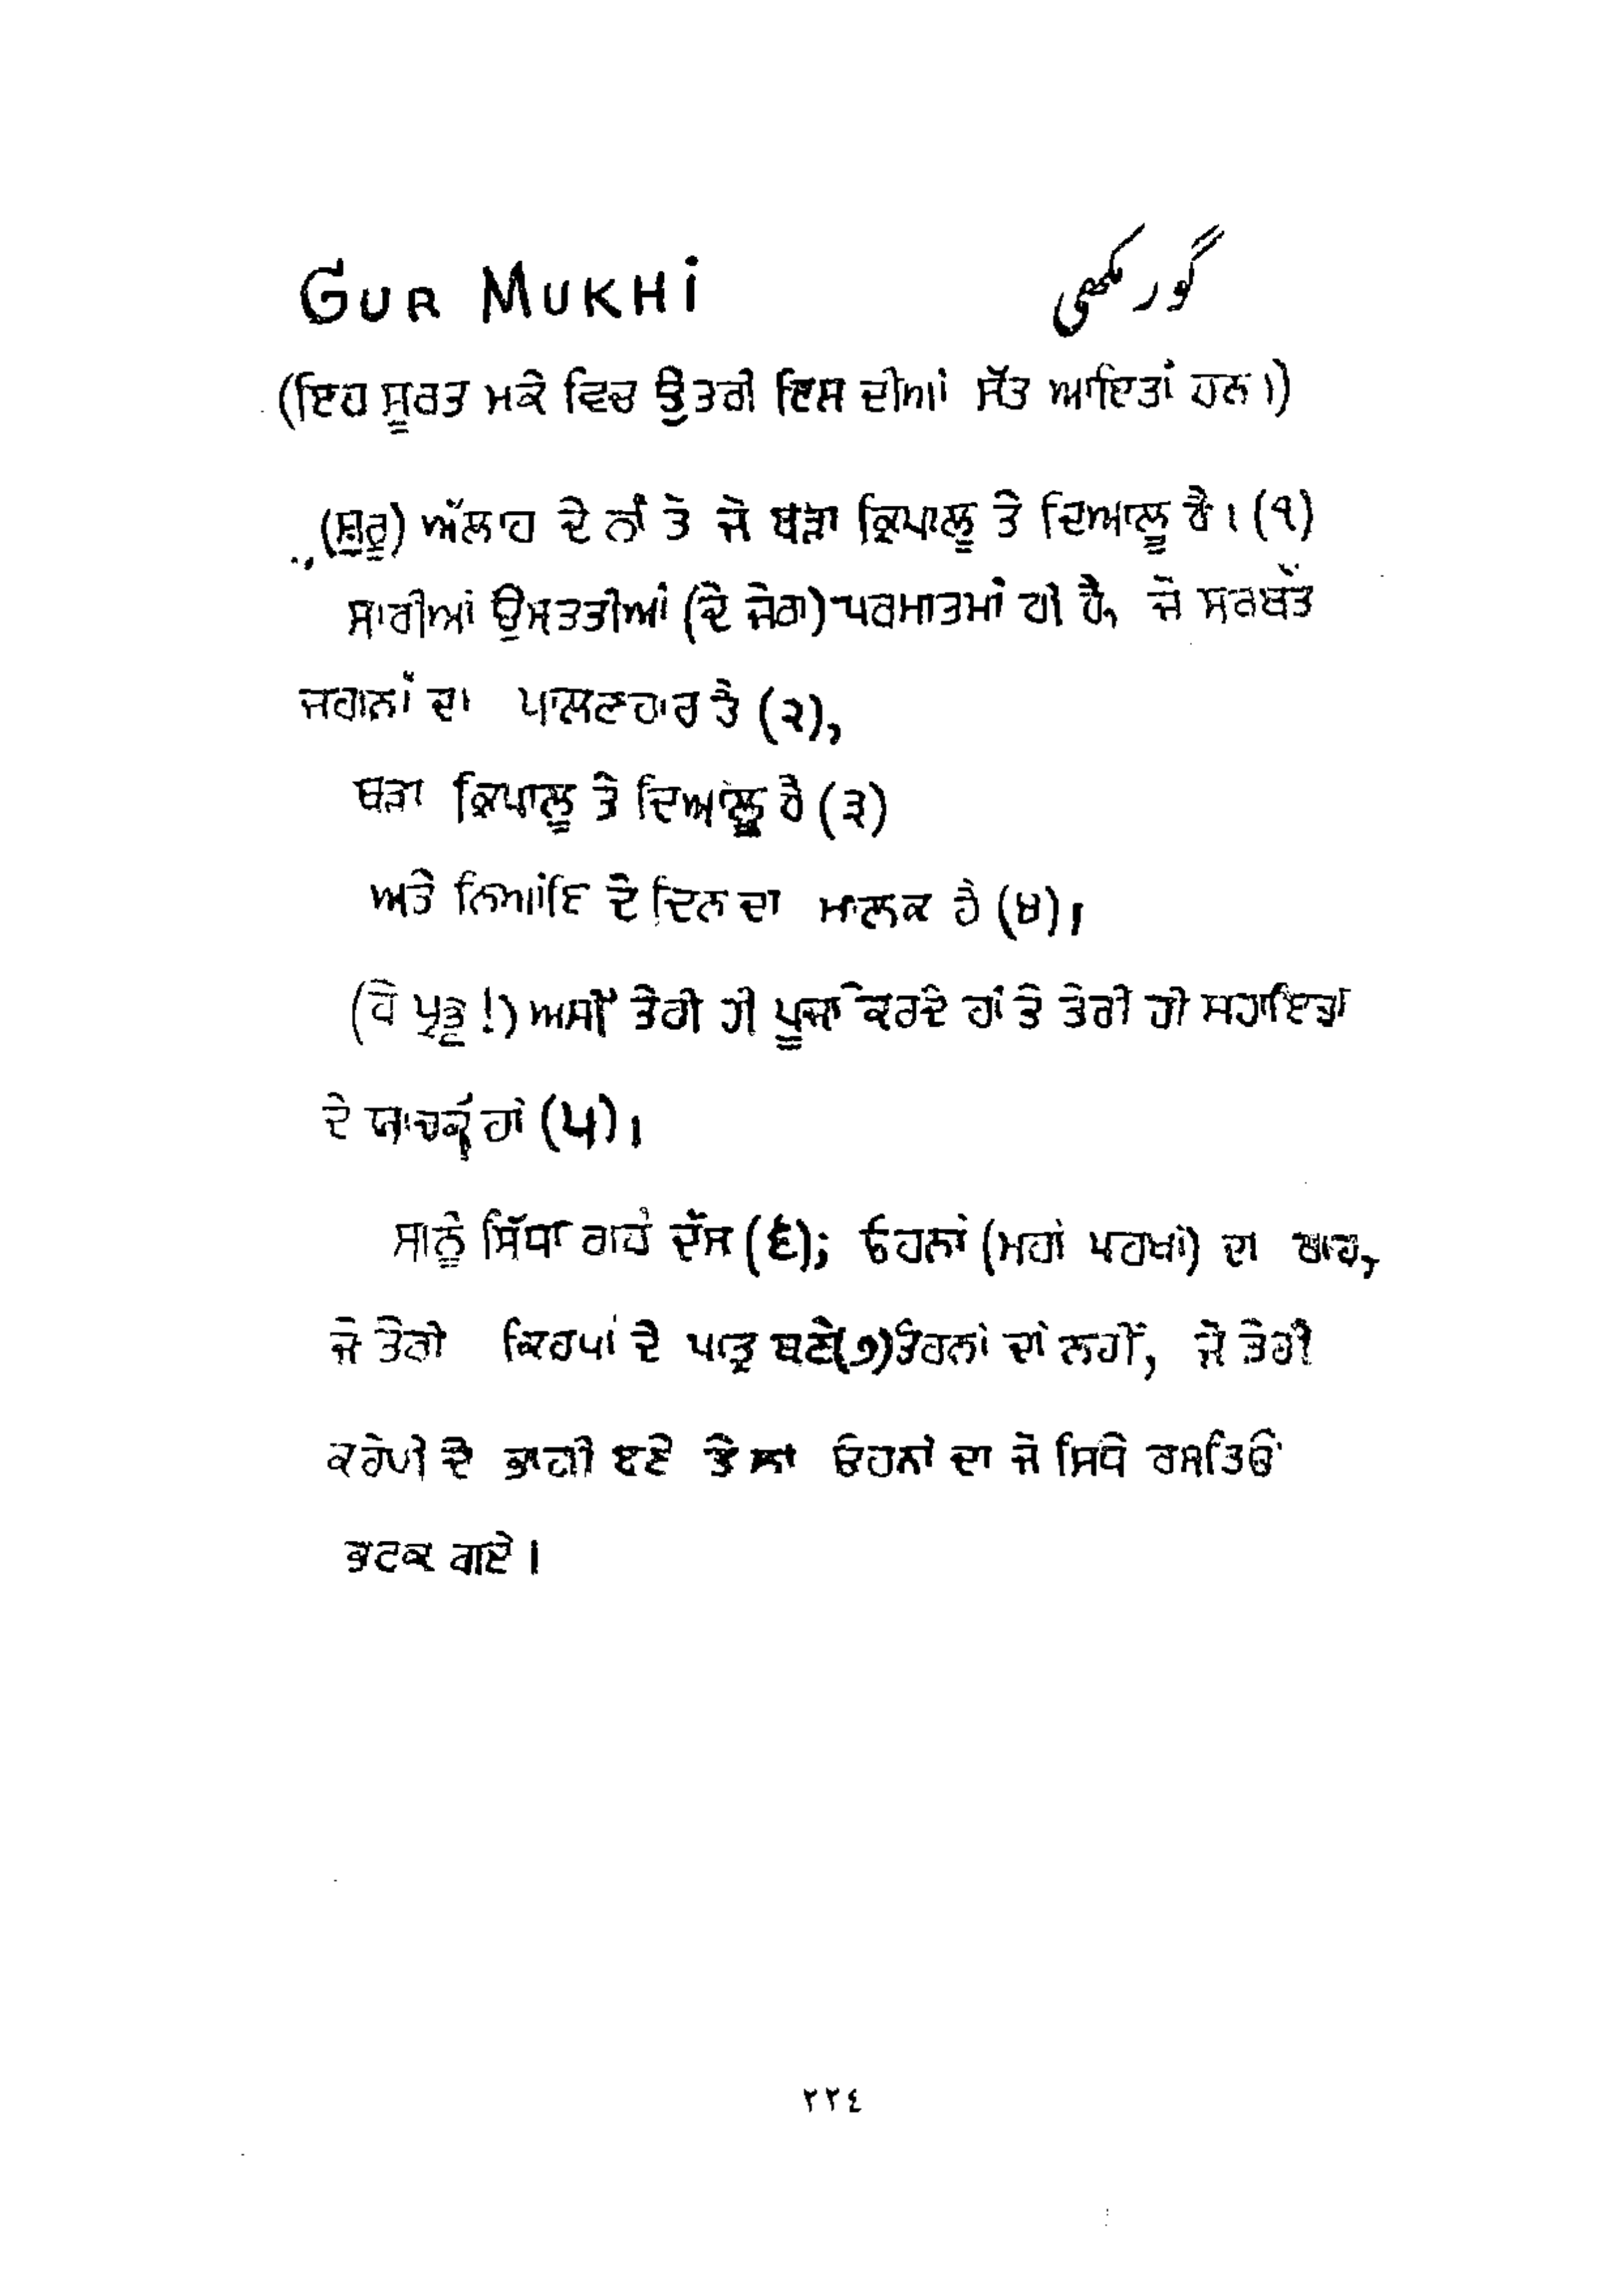 GUR MUKHi گورمکھی
(ਇਹ ਸੂਰਤ ਮਕੇ ਵਿਚ ਉਤਰੀ ਇਸ ਦੀਆਂ ਸੱਤ ਆਇਤਾਂ ਹਨ।)
(ਸ਼ੁਰੂ) ਅੱਲਾਹ ਦੇ ਨਾਂ ਤੇ ਜੋ ਬੜਾ ਕ੍ਰਿਪਾਲੂ ਤੇ ਦਿਆਲੂ ਹੈ। (੧)
ਸਾਰੀਆਂ ਉਸਤਤੀਆਂ (ਦੇ ਜੋਗ) ਪਰਮਾਤਮਾਂ ਹੀ ਹੈ, ਜੋ ਸਰਬੱਤ
ਜਹਾਨਾਂ ਦਾ ਪਾਲਣਹਾਰ ਤੇ (੨),
ਬੜਾ ਕ੍ਰਿਪਾਲੂ ਤੇ ਦਿਆਲੂ ਹੈ (੩)
ਅਤੇ ਨਿਆਂਇ ਦੇ ਦਿਨ ਦਾ ਮਾਲਕ ਹੈ (੪)।
(ਹੇ ਪ੍ਰਭੂ !) ਅਸੀਂ ਤੇਰੀ ਹੀ ਪੂਜਾ ਕਰਦੇ ਹਾਂ ਤੇ ਤੇਰੀ ਹੀ ਸਹਾਇਤਾ
ਦੇ ਯਾਚਕ ਹਾਂ (੫)।
ਸਾਨੂੰ ਸਿੱਧਾ ਰਾਹ ਦੱਸ (੬); ਓਹਨਾਂ (ਮਹਾਂ ਪਰਖਾਂ) ਦਾ ਰਾਹ,
ਜੋ ਤੇਰੀ ਕਿਰਪਾ ਦੇ ਪਾਤ੍ਰ ਬਣੇ(੭)ਓਹਨਾਂ ਦਾ ਨਹੀਂ, ਜੋ ਤੇਰੀ
ਕਰੋਪੀ ਦੇ ਭਾਗੀ ਬਣੇ ਤੇ ਨਾ ਓਹਨਾਂ ਦਾ ਜੋ ਸਿਧੇ ਰਸਤਿਓਂ
ਭਟਕ ਗਏ।
٢٢٤